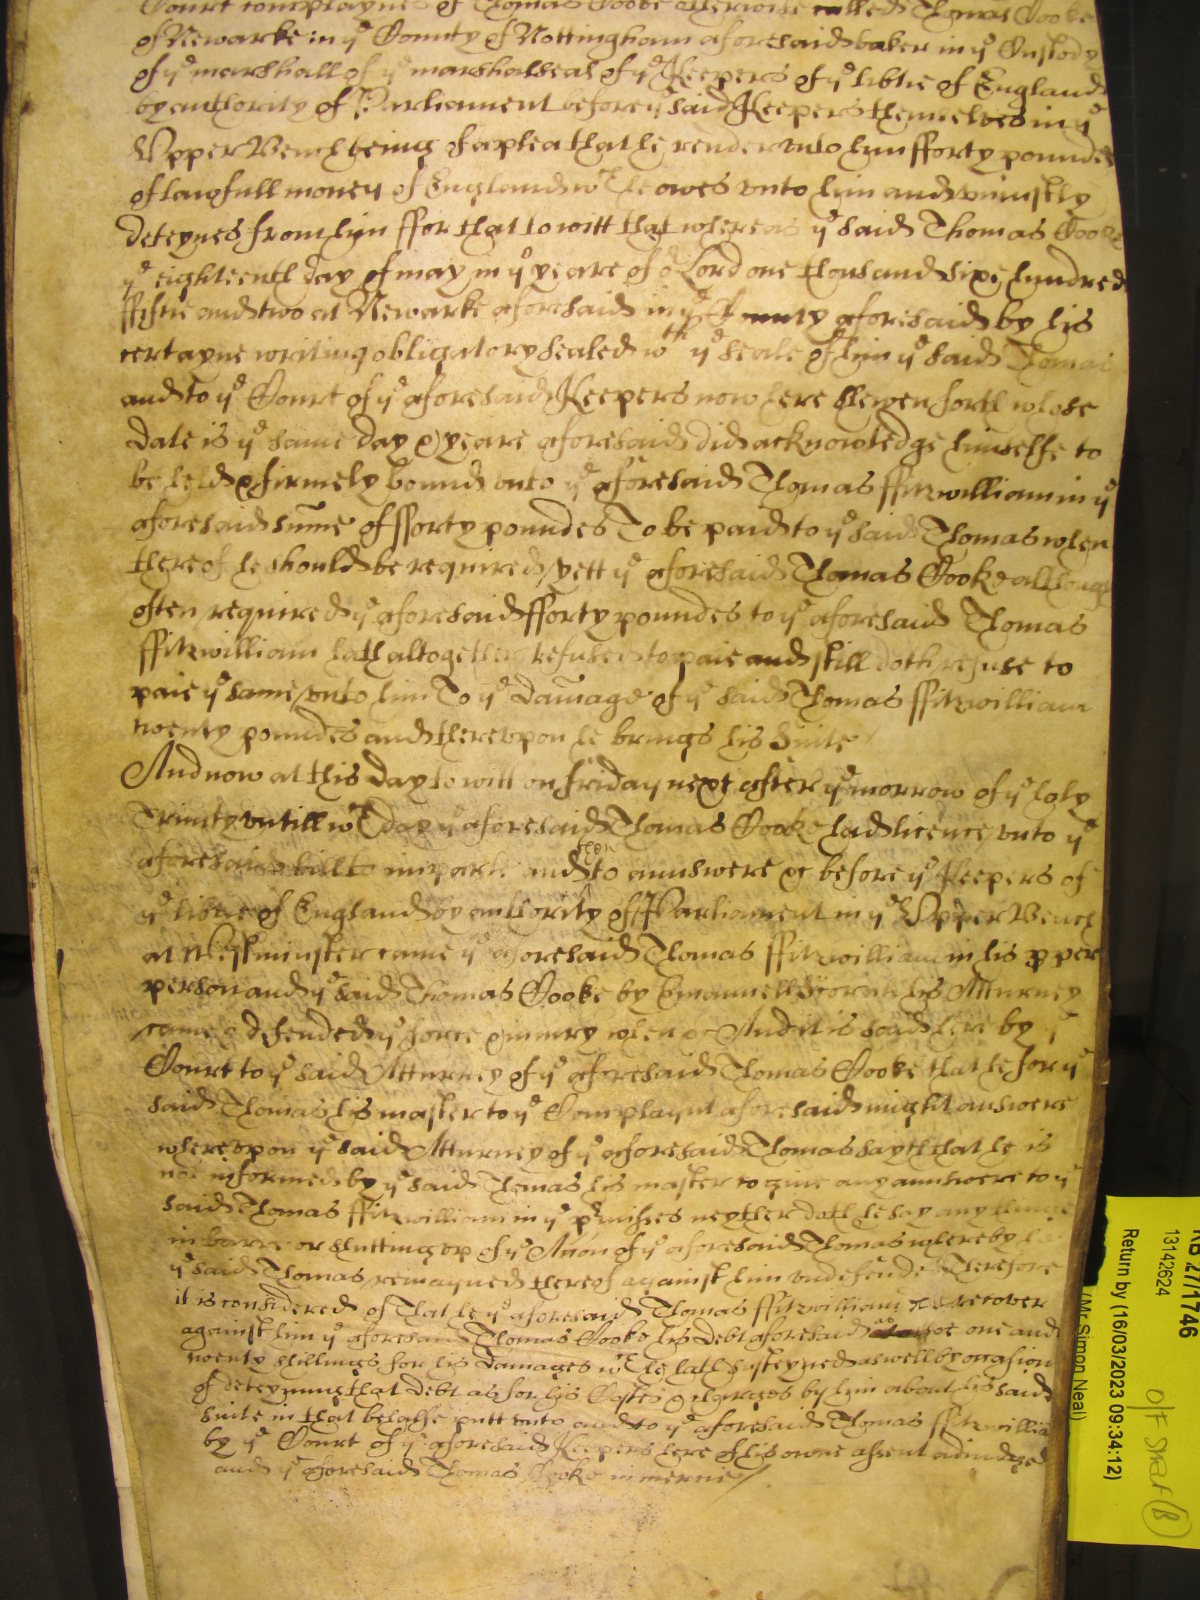 Court complaynes of Thomas Cooke otherwise called Thomas Cooke
of Newarke in yᵉ County of Nottingham aforesaid baker in yᵉ Custody
of yᵉ marshall of yᵉ marshalseas of yᵉ Keepers of yᵉ libtie of England
by authority of Parliament before yᵉ said Keepers themselves in yᵉ
Vpper Bench being of a plea that he render vnto him fforty poundes
of lawfull money of England wᶜʰ he owes vnto him and vniustly
deteynes from him ffor that to witt that whereas yᵉ said Thomas Cooke
yᵉ eighteenth day of may in yᵉ yeare of oʳ Lord one thousand sixe hundred
ffiftie and two at Newarke aforesaid in yᵉ County aforesaid by his
certayne writing obligatory sealed wᵗʰ yᵉ seale of him yᵉ said Thomas
and to yᵉ Court of yᵉ aforesaid Keepers now here shewen forth whose
date is yᵉ same day & yeare aforesaid did acknowledge himselfe to
be held & firmely bound vnto yᵉ aforesaid Thomas ffitzwilliam in yᵉ
aforesaid sume of fforty poundes To be paid to yᵉ said Thomas when
thereof he should be required / yett yᵉ aforesaid Thomas Cooke although
often required yᵉ aforesaid fforty poundes to yᵉ aforesaid Thomas
ffitzwilliam hath altogether refused to paie and still doth refuse to
paie yᵉ same vnto him To yᵉ damage of yᵉ said Thomas ffitzwilliam
twenty poundes and therevpon he brings his Suite /
And now at this day to witt on friday next after yᵉ morrow of yᵉ holy
Trinity vntill wᶜʰ day yᵉ aforesaid Thomas Cooke had licence vnto yᵉ
aforesaid bill to imparle and then to annswere &c before yᵉ Keepers of
yᵉ libtie of England by authority of Parliament in yᵉ Vpper Bench
at Westminster came yᵉ aforesaid Thomas ffitzwilliam in his pper
person and yᵉ said Thomas Cooke by Emanuell his Atturney
came & defended yᵉ force & iniury when &c And it is said here by yᵉ
Court to yᵉ said Atturney of yᵉ aforesaid Thomas Cooke that he for yᵉ
said Thomas his master to yᵉ Complaynt aforesaid might answere
wherevpon yᵉ said Atturney of yᵉ aforesaid Thomas sayth that he is
not informed by yᵉ said Thomas his master to giue any annswere to yᵉ
said Thomas ffitzwilliam in yᵉ pʳmisses neyther doth he say any thinge
in barre or shutting vp of yᵉ Accon of yᵉ aforesaid Thomas whereby he
yᵉ said Thomas remayned thereof against him vndefended Therefore
it is considered of That he yᵉ aforesaid Thomas ffitzwilliam recover
against him yᵉ aforesaid Thomas Cooke his debt aforesaid as also one and
twenty shillings for his damages wᶜʰ he hath susteyned aswell by occasion
of deteyning that debt as for his Costes & charges by him about his said
suite in that behalfe putt vnto and to yᵉ aforesaid Thomas ffitzwilliam
by yᵉ Court of yᵉ aforesaid Keepers here of his owne assent adiudged
and yᵉ aforesaid Thomas Cooke in mercie /
KB 27/1746
13142624
Return by (16/03/2023 09:34:12)
(Mr Simon Neal)